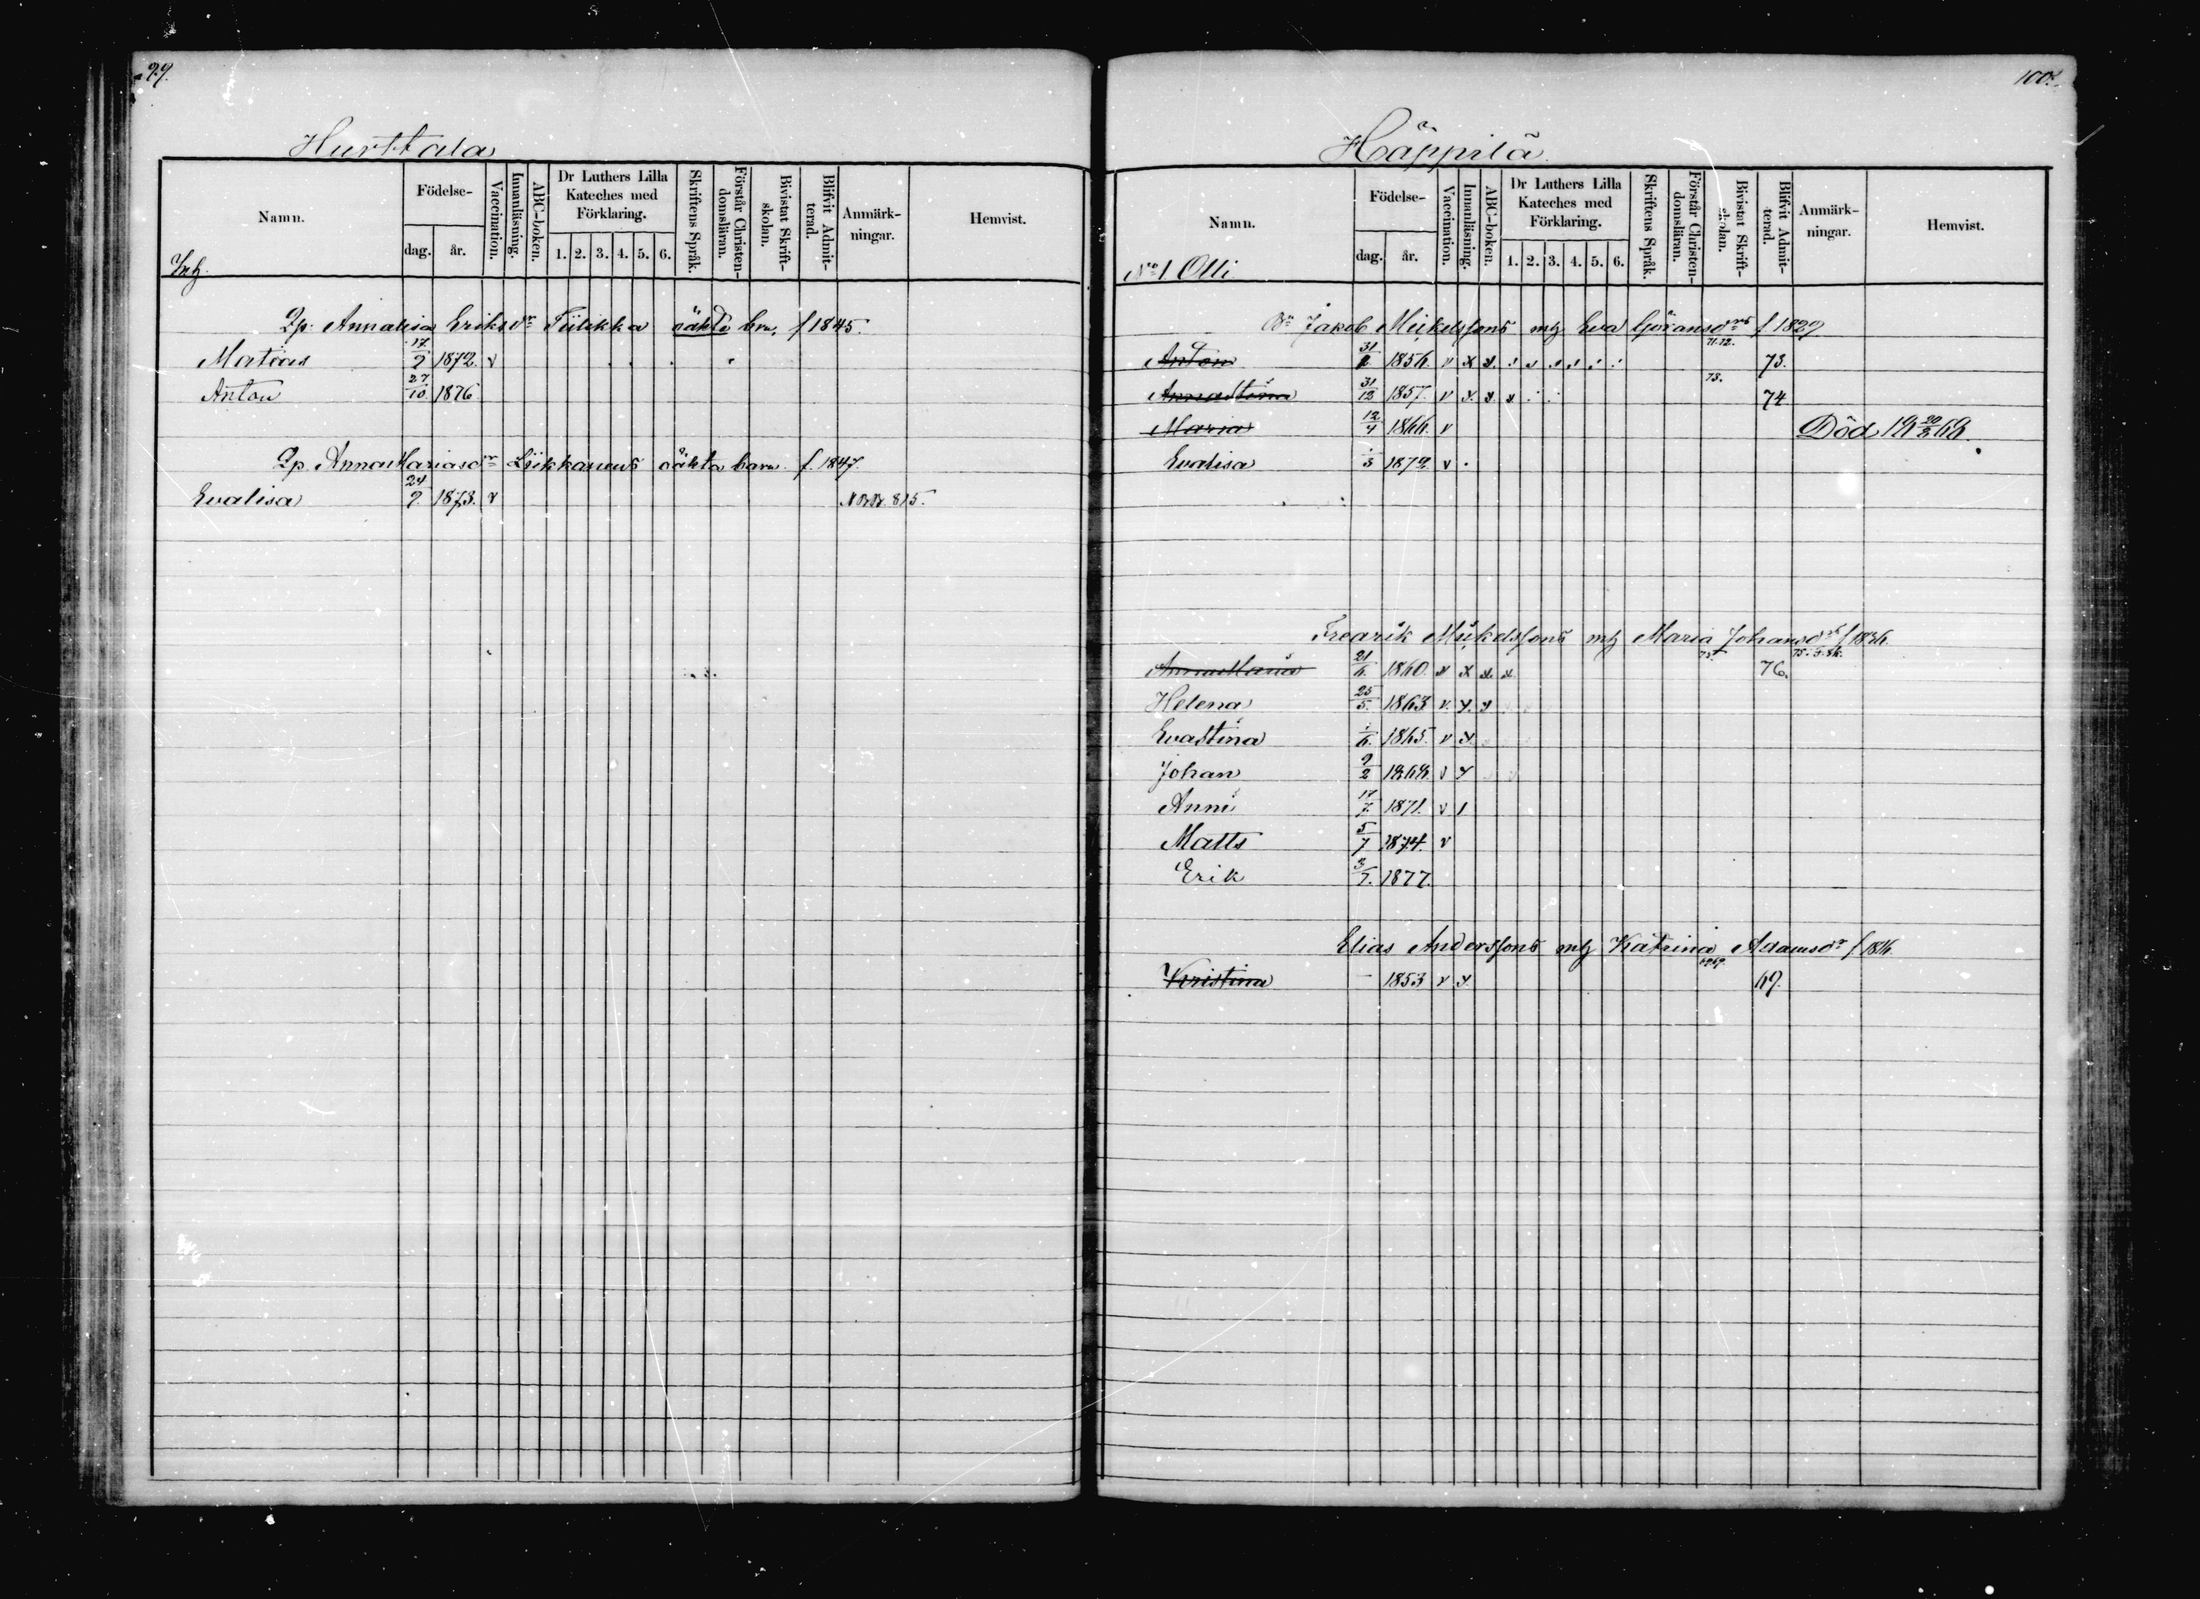 99.
Hurttala
Namn.
Födelse-
dag.
år.
Vaccination.
Innanläsning.
ABC-boken.
Dr Luthers Lilla Kateches med Förklaring.
1. 2. 3. 4. 5. 6.
Skriftens Språk.
Förstår Christendomsläran.
Bivistat Skriftskolan.
Blifvit Admitterad.
Anmärkningar.
Hemvist.
Inh.
Qp. Annalisa Eriksdr Tiilikka oäkta brn, f 1845.
Matias 17/9 1872. v
Anton 27/10 1876
Qp. Anna Mariasdr Liikkanens oäkta barn. f. 1847.
Evalisa 24/9 1873. v 815.
100.
Häppilä
Namn.
Födelse-
dag.
år.
Vaccination.
Innanläsning.
ABC-boken.
Dr Luthers Lilla Kateches med Förklaring.
1. 2. 3. 4. 5. 6.
Skriftens Språk.
Förstår Christendomsläran.
Bivistat Skriftskolan.
Blifvit Admitterad.
Anmärkningar.
Hemvist.
No 1 Olli
Bn Jakob Mickelssons mh Eva Göransdrs f 1829
Anton 1856. v x x. 71.72. 73.
Anna Stina 31/12 1857. v x. x. x 73. 74
Maria 12/4 1866. v Död 18 20/2 68.
Evalisa 1872 v
Fredrik Mickelssons mh Maria Johansdr f 1836
Anna Maria 21/6. 1860. v x x. x 75. 76.
Helena 25/5. 1863 v. x. x
Evastina 1/6. 1865. v x.
Johan 9/2 1868 v x
Anni 17/7. 1871. v 1
Matts 5/7 1874. v
Erik 3/7. 1877.
Elias Anderssons mh Katrina Adamsdr f 1816.
Kristina - 1853 v x. 69.